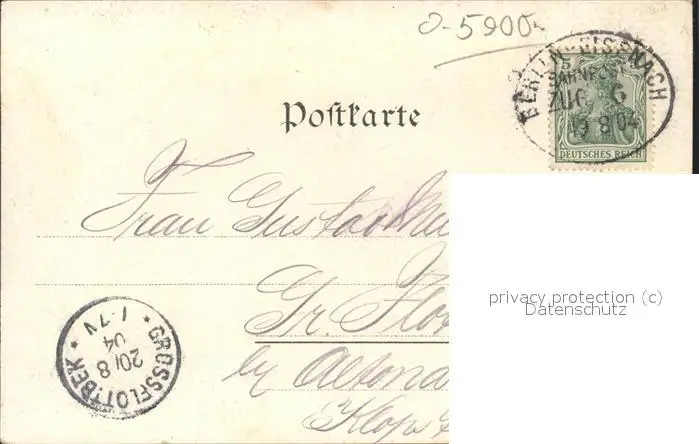 0-5900
BERLIN-EISENACH
BAHNPOST
ZUG 6
19 8 04
5
DEUTSCHES REICH
Postkarte
Frau Gustav
Gr. Flo
by Altona
Klops
privacy protection (c)
Datenschutz
GROSSFLOTTBEK
20/8
04
1-7N